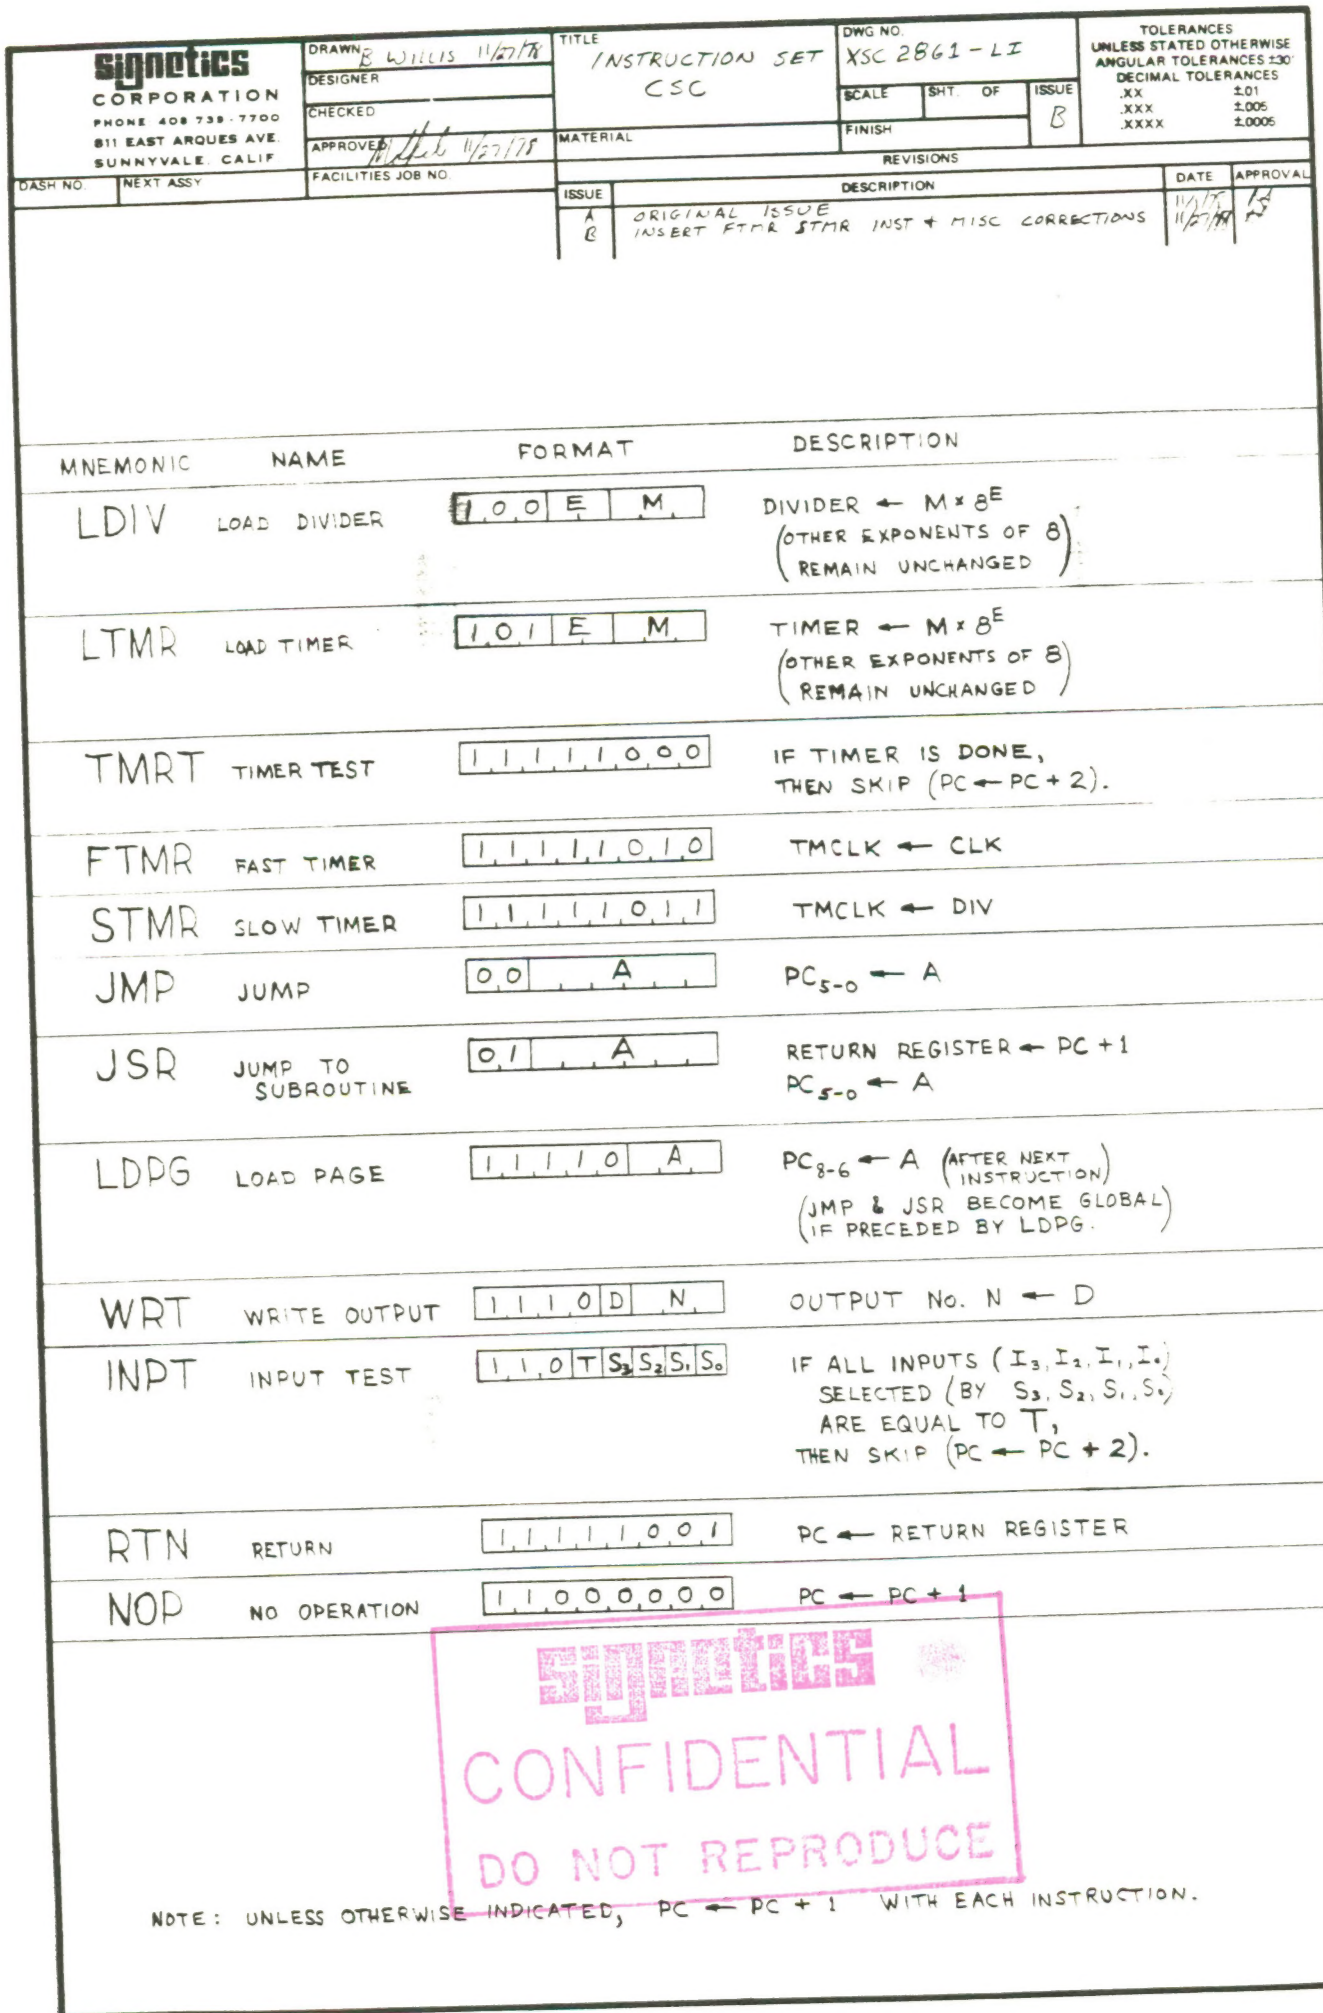 signetics
CORPORATION
PHONE 408 739-7700
811 EAST ARQUES AVE.
SUNNYVALE, CALIF
DASH NO.
NEXT ASSY
DRAWN B WILLIS 11/27/78
DESIGNER
CHECKED
APPROVED 11/27/78
FACILITIES JOB NO.
TITLE
INSTRUCTION SET
CSC
MATERIAL
DWG NO.
XSC 2861-LI
SCALE
SHT. OF
ISSUE
B
FINISH
TOLERANCES
UNLESS STATED OTHERWISE
ANGULAR TOLERANCES ±30'
DECIMAL TOLERANCES
.XX ±.01
.XXX ±.005
.XXXX ±.0005
REVISIONS
ISSUE DESCRIPTION DATE APPROVAL
A ORIGINAL ISSUE
B INSERT FTMR STMR INST + MISC CORRECTIONS 11/27/78
MNEMONIC NAME FORMAT DESCRIPTION
LDIV LOAD DIVIDER 1 0 0 E M DIVIDER ← M x 8^E
(OTHER EXPONENTS OF 8
REMAIN UNCHANGED)
LTMR LOAD TIMER 1 0 1 E M TIMER ← M x 8^E
(OTHER EXPONENTS OF 8
REMAIN UNCHANGED)
TMRT TIMER TEST 1 1 1 1 1 0 0 0 IF TIMER IS DONE,
THEN SKIP (PC ← PC + 2).
FTMR FAST TIMER 1 1 1 1 1 0 1 0 TMCLK ← CLK
STMR SLOW TIMER 1 1 1 1 1 0 1 1 TMCLK ← DIV
JMP JUMP 0 0 A PC5-0 ← A
JSR JUMP TO
SUBROUTINE 0 1 A RETURN REGISTER ← PC + 1
PC5-0 ← A
LDPG LOAD PAGE 1 1 1 1 0 A PC8-6 ← A (AFTER NEXT
INSTRUCTION)
(JMP & JSR BECOME GLOBAL
IF PRECEDED BY LDPG.)
WRT WRITE OUTPUT 1 1 1 0 D N OUTPUT No. N ← D
INPT INPUT TEST 1 1 0 T S3 S2 S1 S0 IF ALL INPUTS (I3, I2, I1, I0)
SELECTED (BY S3, S2, S1, S0)
ARE EQUAL TO T,
THEN SKIP (PC ← PC + 2).
RTN RETURN 1 1 1 1 1 0 0 1 PC ← RETURN REGISTER
NOP NO OPERATION 1 1 0 0 0 0 0 0 PC ← PC + 1
signetics
CONFIDENTIAL
DO NOT REPRODUCE
NOTE: UNLESS OTHERWISE INDICATED, PC ← PC + 1 WITH EACH INSTRUCTION.